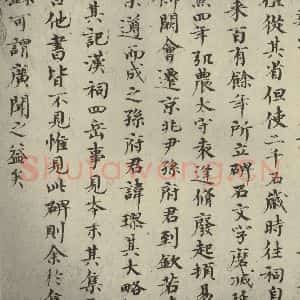 從其省但使二千石歲時往祠自
來百有餘年所立碑石文字磨滅延
熹四年弘農太守袁逢修廢起頓易
飾闕會遷京兆尹孫府君到欽若
業遵而成之孫府君諱璆其大略
其記漢祠四岳事見本末其集
宮他書皆不見惟見此碑則余於集
錄可謂廣聞之益矣